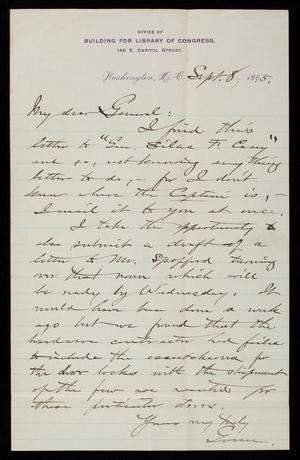 OFFICE OF
BUILDING FOR LIBRARY OF CONGRESS,
145 E. CAPITOL STREET.
Washington, D.C. Sept. 8, 1895.
My dear General:
I find this
letter to "Gen. Silas F. Casey"
and so, not knowing any thing
better to do, – for I don't
know where the Captain is, –
I mail it to you at once.
I take the opportunity to
also submit a draft of a
letter to Mr. Spofford turning
over that room which will
be ready by Wednesday. It
would have been done a week
ago but we found that the
hardware contractor had failed
to include the escutcheons for
the door locks with the shipment
of the few we wanted for
these particular doors.
Yours very truly
Green.